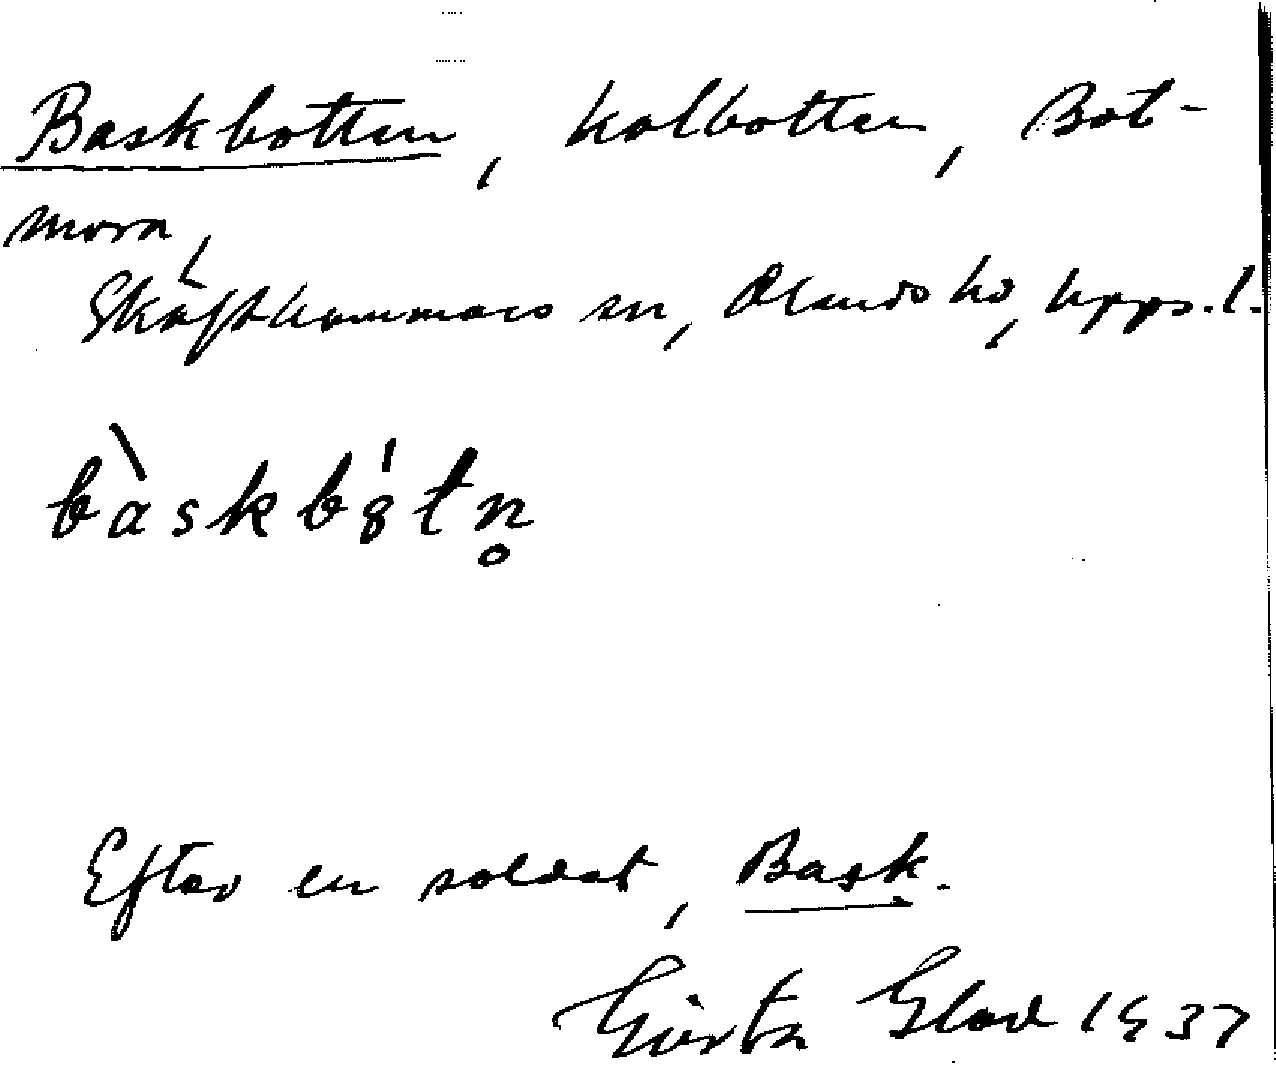 Baskbotten, kolbotten, Bot-
mora,
Skäfthammars sn, Olands hd, Upps. l.
bàskbo̍tn̥
Efter en soldat, Bask.
Gösta Glad 1937